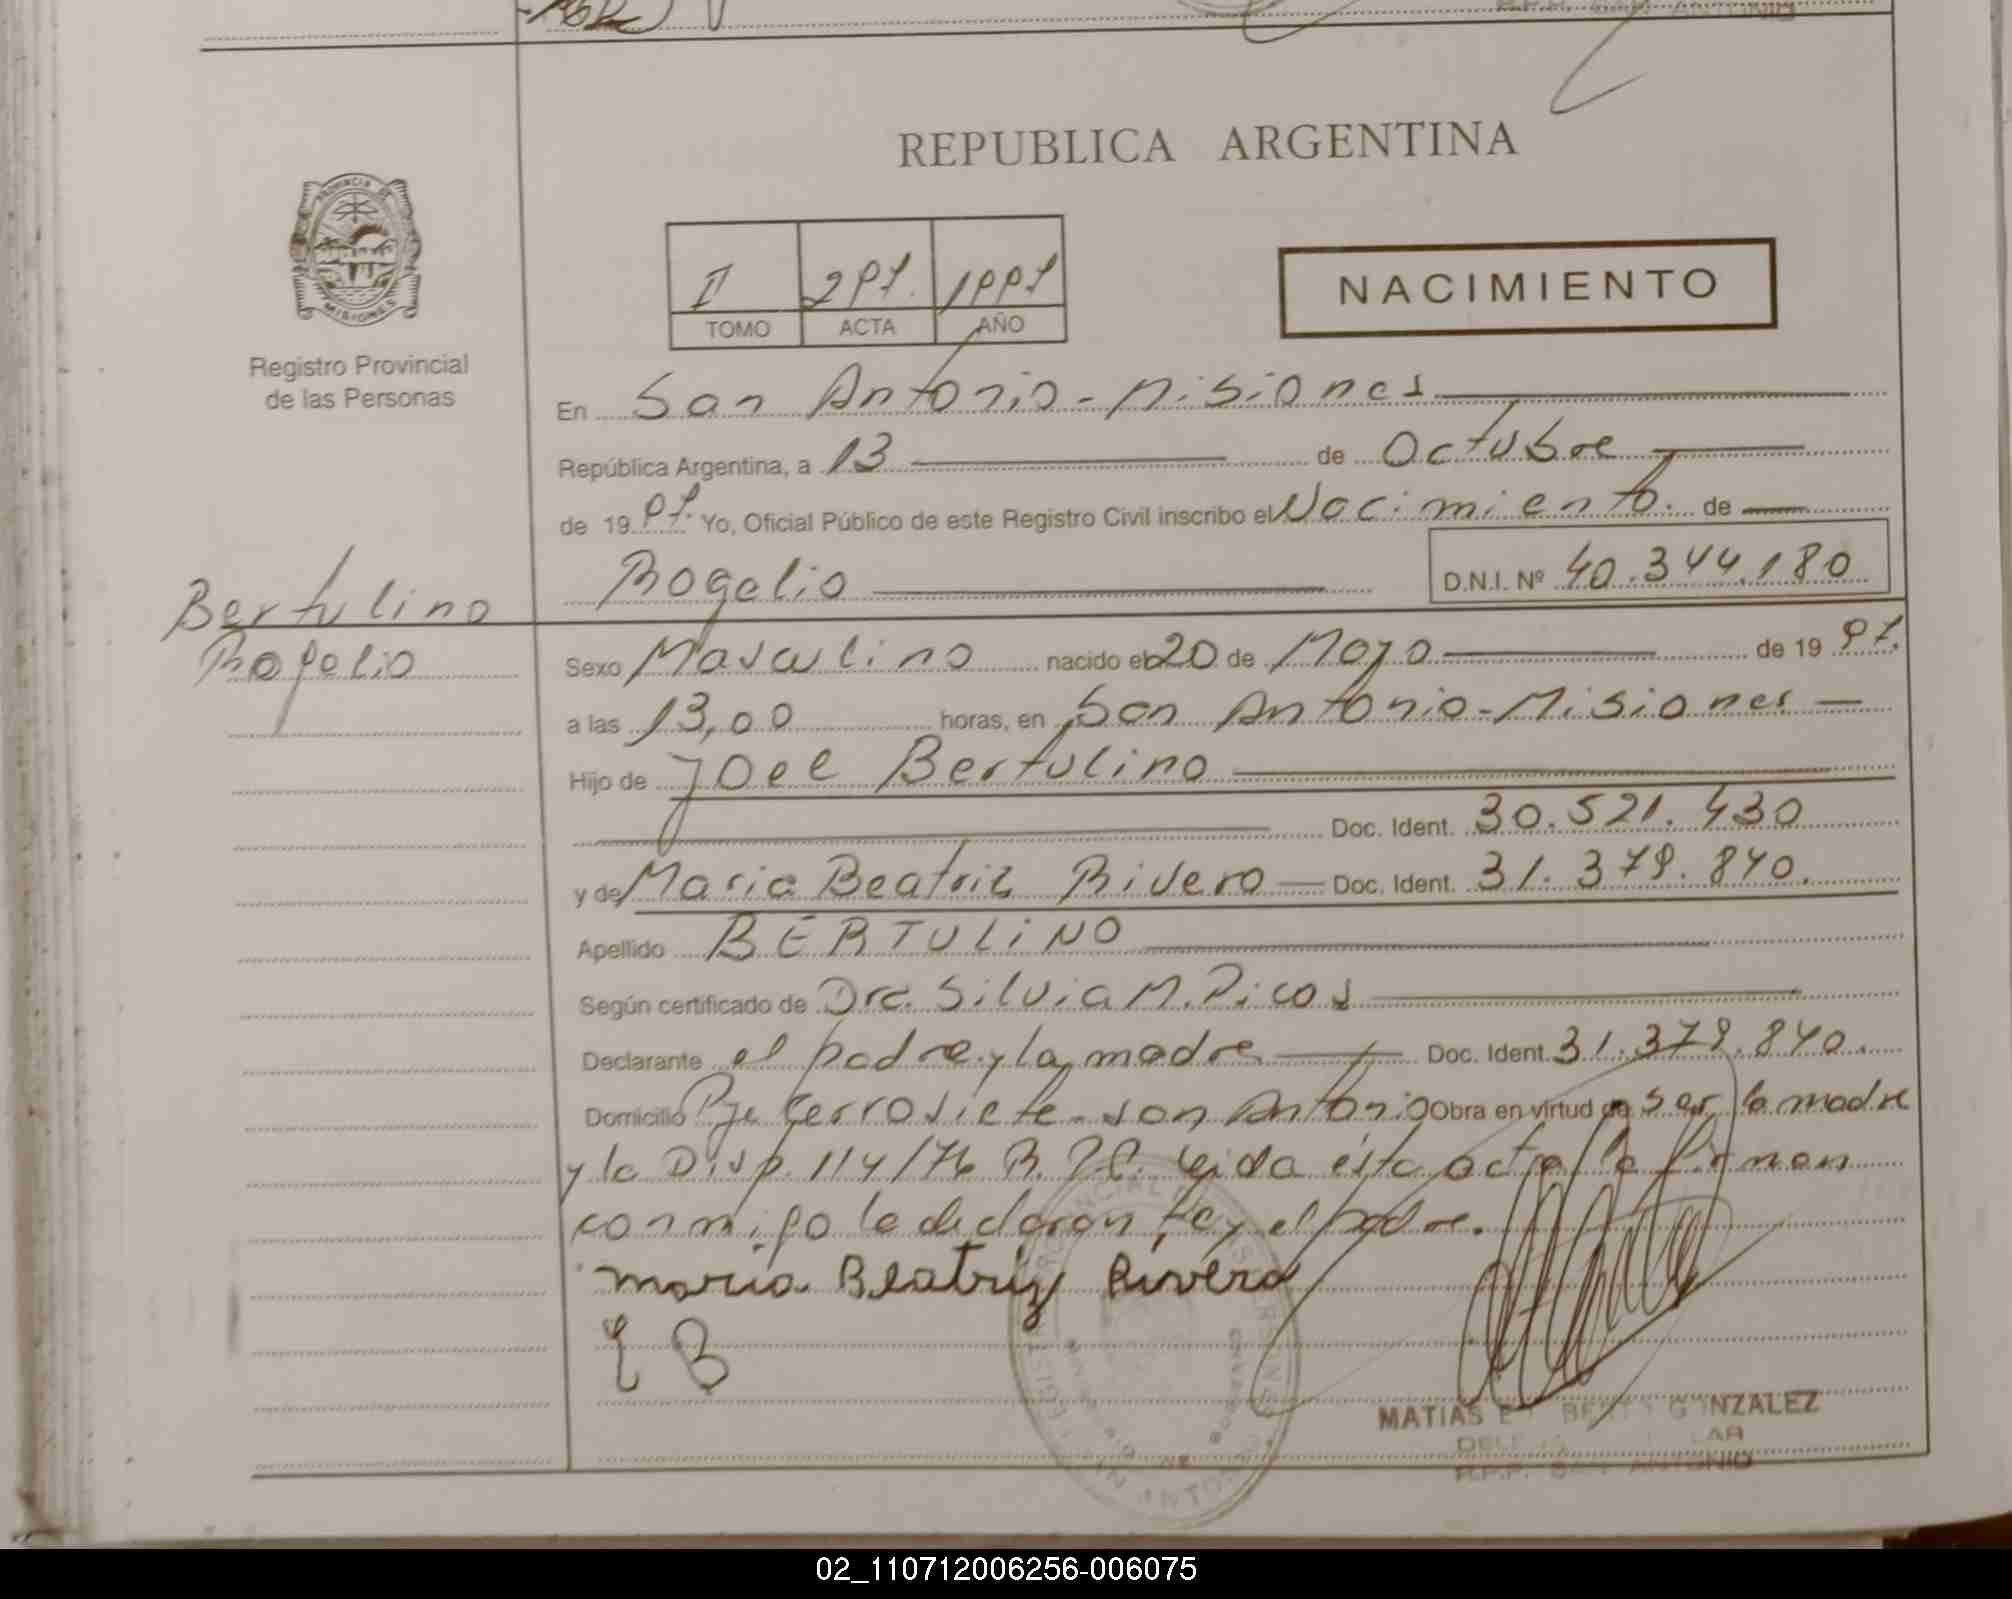 REPUBLICA ARGENTINA
PROVINCIA DE
MISIONES
Registro Provincial
de las Personas
II 297. 1997
TOMO ACTA AÑO
NACIMIENTO
En San Antonio - Misiones
República Argentina, a 13 de Octubre
de 19 97. Yo, Oficial Público de este Registro Civil inscribo el Nacimiento. de
Rogelio D.N.I. Nº 40.344.180
Bertulino
Rogelio
Sexo Masculino nacido el 20 de Mayo de 19 97.
a las 13,00 horas, en San Antonio - Misiones
Hijo de Joel Bertulino
Doc. Ident. 30.521.430
y de Maria Beatriz Rivero Doc. Ident. 31.379.840.
Apellido BERTULINO
Según certificado de Dra. Silvia M. Picos
Declarante el padre y la madre Doc. Ident. 31.379.840.
Domicilio Pje Cerro Siete - San Antonio Obra en virtud de ser la madre
y la Disp. 114/76 R.P.P. Leida esta acta la firman
conmigo la declaran te y el padre.
maria Beatriz Rivero
E B
MATIAS GONZALEZ
R.P.P. SAN ANTONIO
02_110712006256-006075